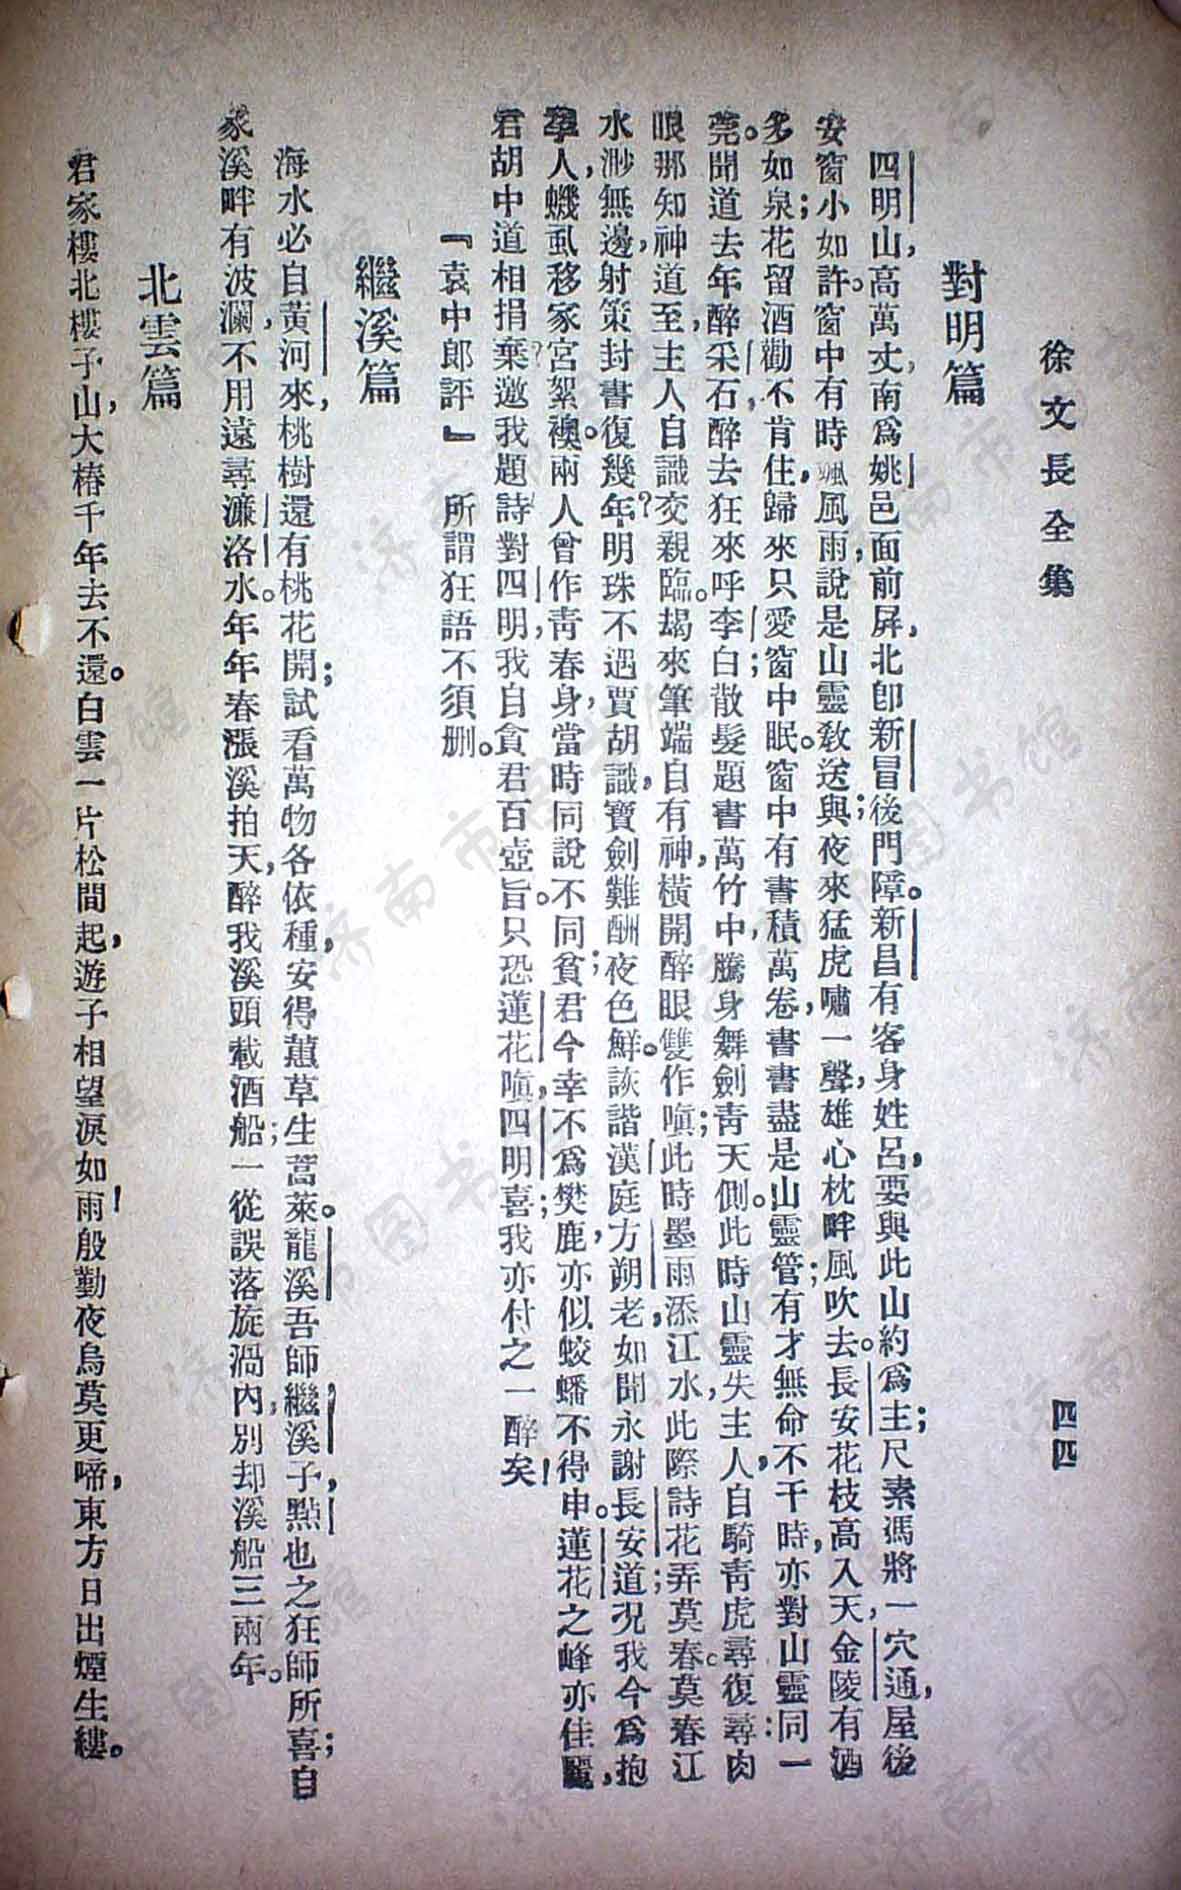 徐文長全集
四四
對明篇
四明山,高萬丈,南爲姚邑面前屏,北卽新冒;後門障。新昌有客身姓呂,要與此山約爲主;尺素馮將一穴通,屋後
安窗小如許。窗中有時颯風雨,說是山靈敎送與。夜來猛虎嘯一聲,雄心枕畔風吹去。長安花枝高入天,金陵有酒
多如泉;花留酒勸不肯住,歸來只愛窗中眠。窗中有書積萬卷,書書盡是山靈管;有才無命不干時,亦對山靈同一
莞。聞道去年醉采石,醉去狂來呼李白;散髮題書萬竹中,騰身舞劍靑天側。此時山靈失主人,自騎靑虎尋復尋;肉
眼那知神道至,主人自識交親臨。朅來筆端自有神,橫開醉眼雙作嗔;此時墨雨添江水,此際詩花弄莫春。莫春江
水渺無邊,射策封書復幾年?明珠不遇賈胡識,寶劍難酬夜色鮮。詼諧漢庭方朔老,如聞永謝長安道;況我今爲抱
犖人,蟣虱移家宮絮襖。兩人曾作靑春身,當時同說不同貧;君今幸不爲樊鹿,亦似蛟蟠不得申。蓮花之峰亦佳麗,
君胡中道相捐棄?邀我題詩對四明,我自貪君百壺旨。只恐蓮花嗔,四明喜;我亦付之一醉矣!
『袁中郎評』 所謂狂語不須删。
繼溪篇
海水必自黃河來,桃樹還有桃花開;試看萬物各依種,安得蕙草生蒿萊。龍溪吾師繼溪子,點也之狂師所喜;自
家溪畔有波瀾,不用遠尋濂洛水。年年春漲溪拍天,醉我溪頭載酒船;一從誤落旋渦內,別却溪船三兩年。
北雲篇
君家樓北樓子山,大椿千年去不還。白雲一片松間起,遊子相望淚如雨!殷勤夜烏莫更啼,東方日出煙生縷。